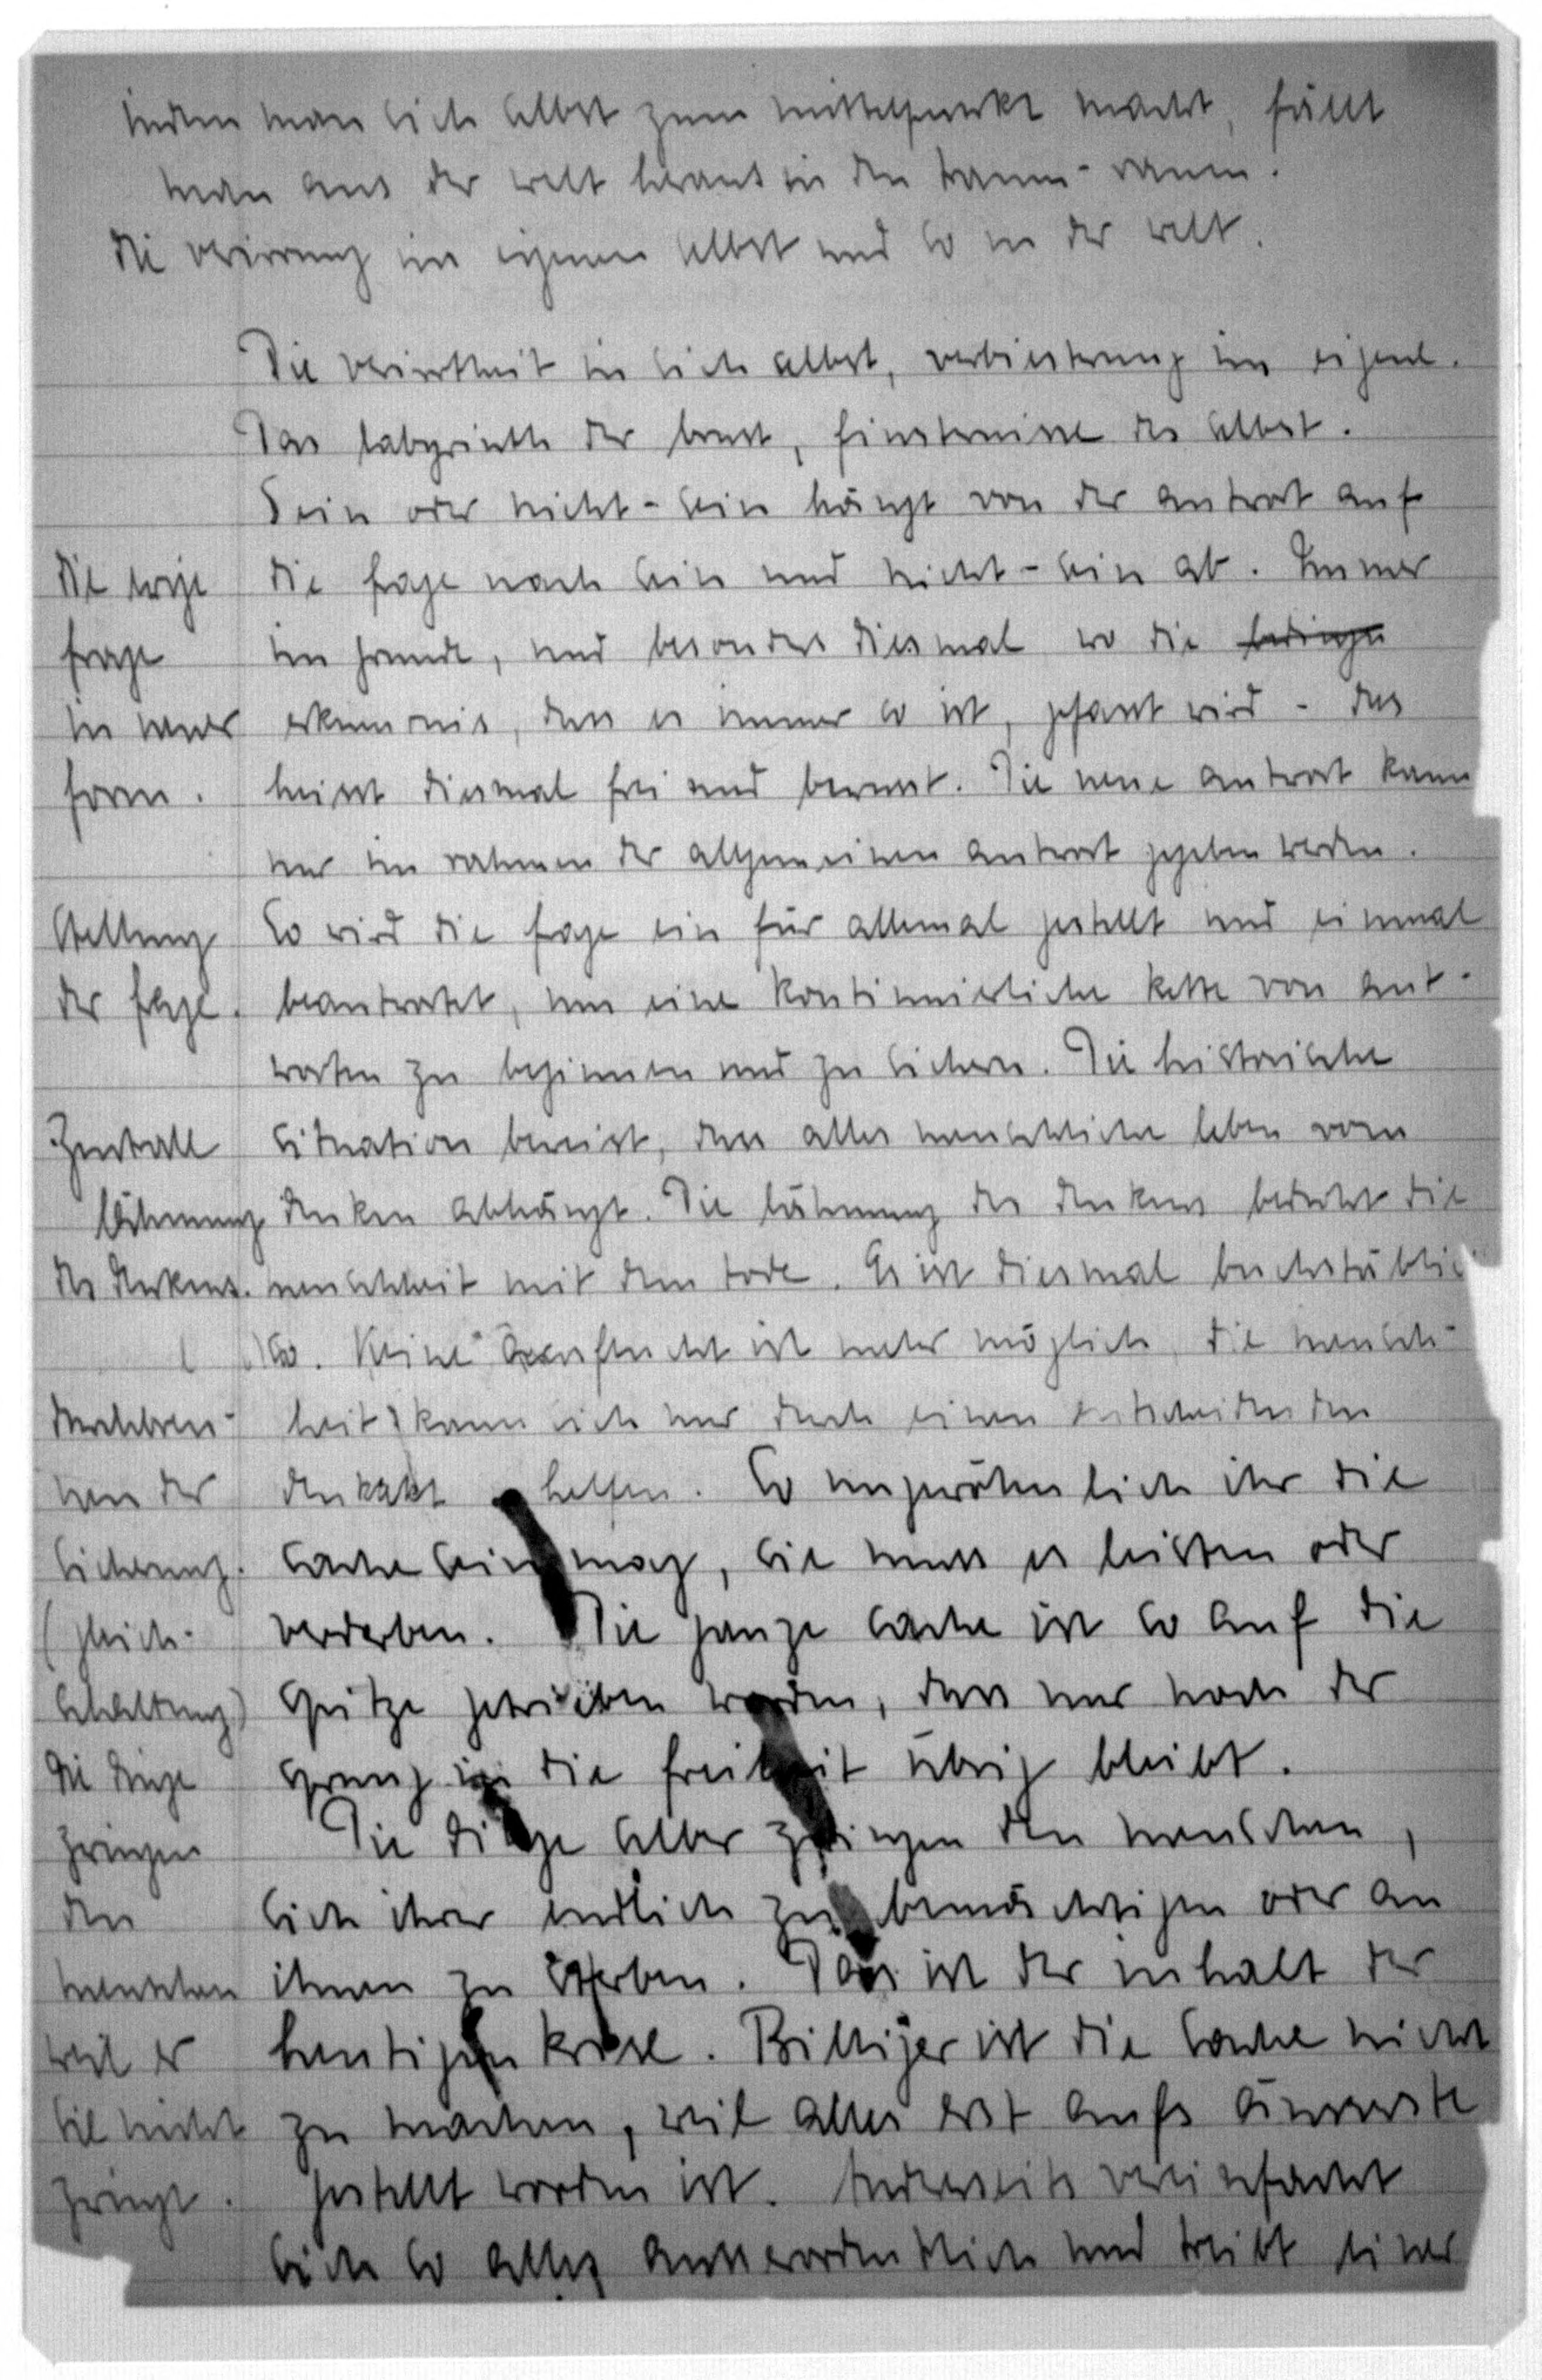 indem man sich selbst zum mittelpunkt macht, fällt
man aus der welt heraus in den traum-raum.
die verirrung im eigenen selbst und so in der welt.
Die verirrtheit in sich selbst, verbiesterung im eigenen.
Das labyrinth der brust, finsternisse des selbst.
Sein oder nicht-sein hängt von der antwort auf
die frage nach sein und nicht-sein ab. Immer
im grunde, und besonders diesmal wo die
erkenntnis, dass es immer so ist, gefasst wird - das
heisst diesmal frei und bewusst. Die neue antwort kann
nur im rahmen der allgemeinen antwort gegeben werden.
So wird die frage ein für allemal gestellt und einmal
beantwortet, um eine kontinuierliche kette von ant-
worten zu beginnen und zu sichern. Die historische
situation beweist, dass alles menschliche leben vom
denken abhängt. Die lähmung des denkens bedroht die
menschheit mit dem tode. Es ist diesmal buchstäblic
so. Keine ausflucht ist mehr möglich, die mensch-
heit kann sich nur durch einen entscheidenden
denkakt helfen. So ungewöhnlich ihr die
sache sein mag, sie muss es leisten oder
verderben. Die ganze sache ist so auf die
spitze getrieben worden, dass nur noch der
sprung in die freiheit übrig bleibt.
Die dinge selber zwingen den menschen,
sich ihrer endlich zu bemächtigen oder an
ihnen zu sterben. Das ist der inhalt der
heutigen krise. Billiger ist die sache nicht
zu machen, weil alles erst aufs äusserste
gestellt worden ist. Anderseits vereinfacht
sich so alles ausserordentlich und treibt einer
die ewige
frage
in neuer
form.
Stellung
der frage.
Zentrale
lähmung
des denkens.
durchbren-
nen der
sicherung.
(gleich-
schaltung)
die dinge
zwingen
den
menschen
weil er
sie nicht
zwingt.